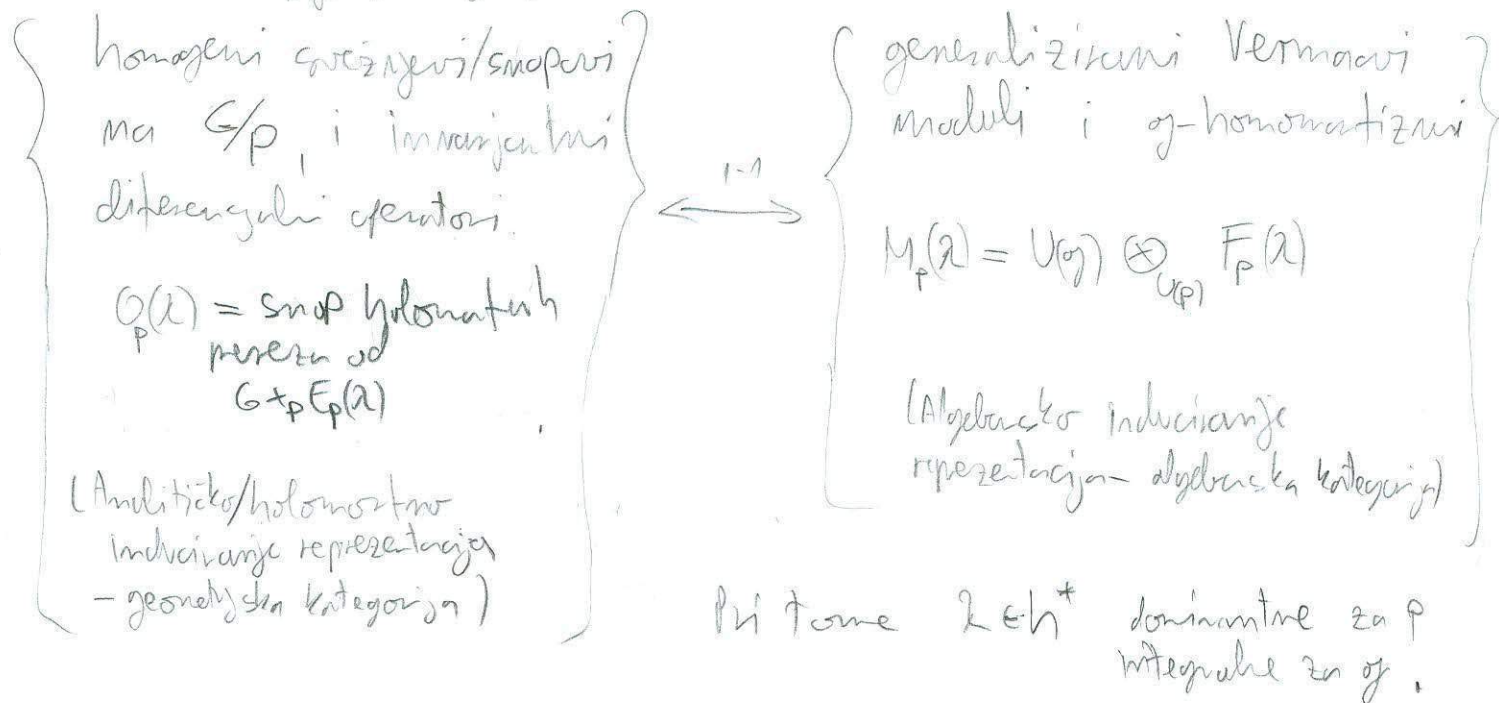 homogeni svežnjevi/snopovi
na G/P, i invarijantni
diferencijalni operatori.
O_p(λ) = snop holomorfnih
prereza od
G ×_P E_p(λ)
(Analitičko/holomorfno
induciranje reprezentacija
- geometrijska kategorija)
1-1
generalizirani Vermaovi
moduli i g-homomorfizmi
M_p(λ) = U(g) ⊗_{U(p)} F_p(λ)
(Algebarsko induciranje
reprezentacija - algebarska kategorija)
Pri tome λ ∈ h* dominantne za p
integralne za g.